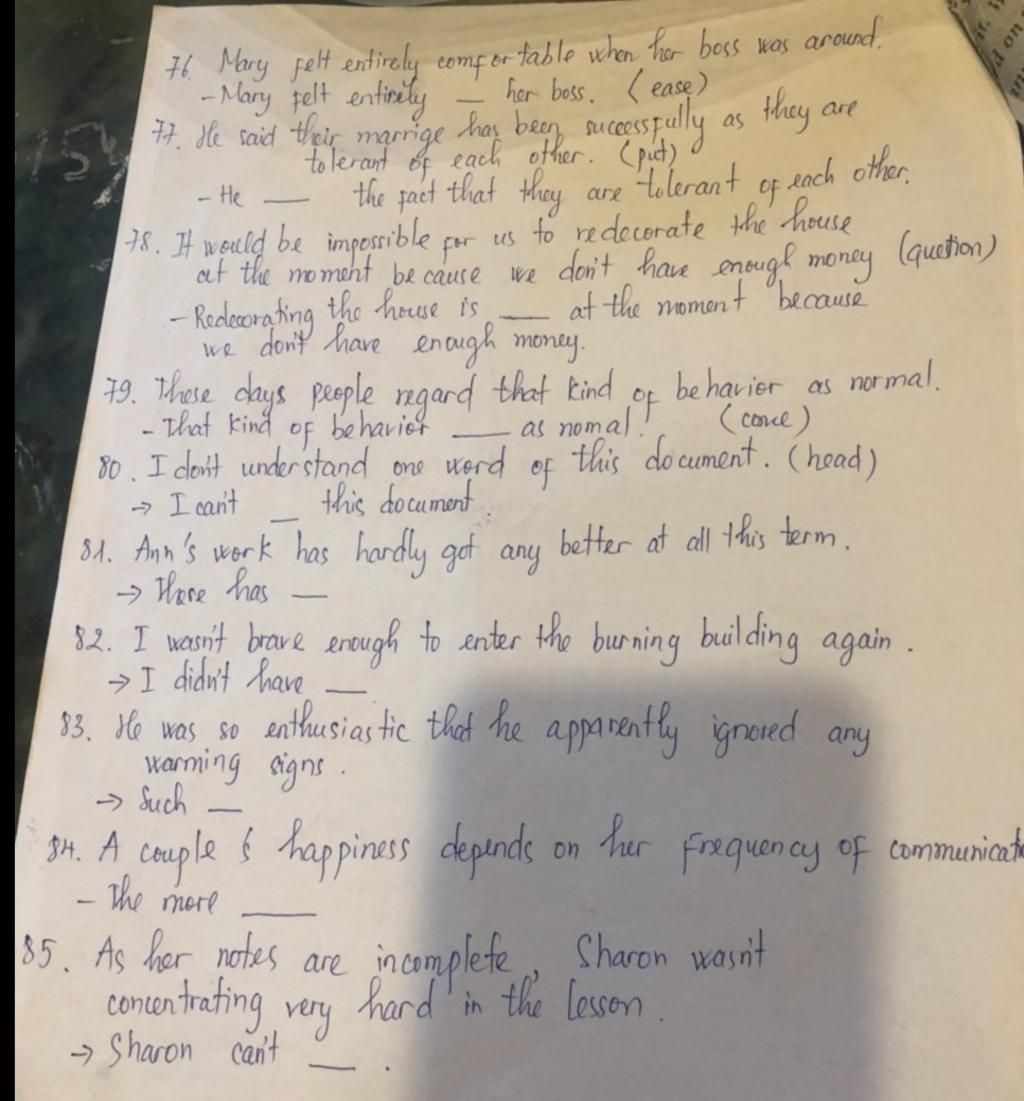 76. Mary felt entirely comfortable when her boss was around.
- Mary felt entirely __ her boss. (ease)
77. He said their marrige has been successfully as they are
tolerant of each other. (put)
- He __ the fact that they are tolerant of each other.
78. It would be impossible for us to redecorate the house
at the moment because we don't have enough money (quetion)
- Redecorating the house is __ at the moment because
we don't have enough money.
79. These days people regard that kind of behavior as normal.
- That kind of behavior __ as nomal. (come)
80. I don't understand one word of this document. (head)
→ I can't __ this document.
81. Ann's work has hardly got any better at all this term.
→ There has __
82. I wasn't brave enough to enter the burning building again.
→ I didn't have __
83. He was so enthusiastic that he apparently ignored any
warming signs.
→ Such __
84. A couple's happiness depends on her frequency of
- The more __
85. As her notes are incomplete, Sharon wasn't
concentrating very hard in the lesson.
→ Sharon can't __.